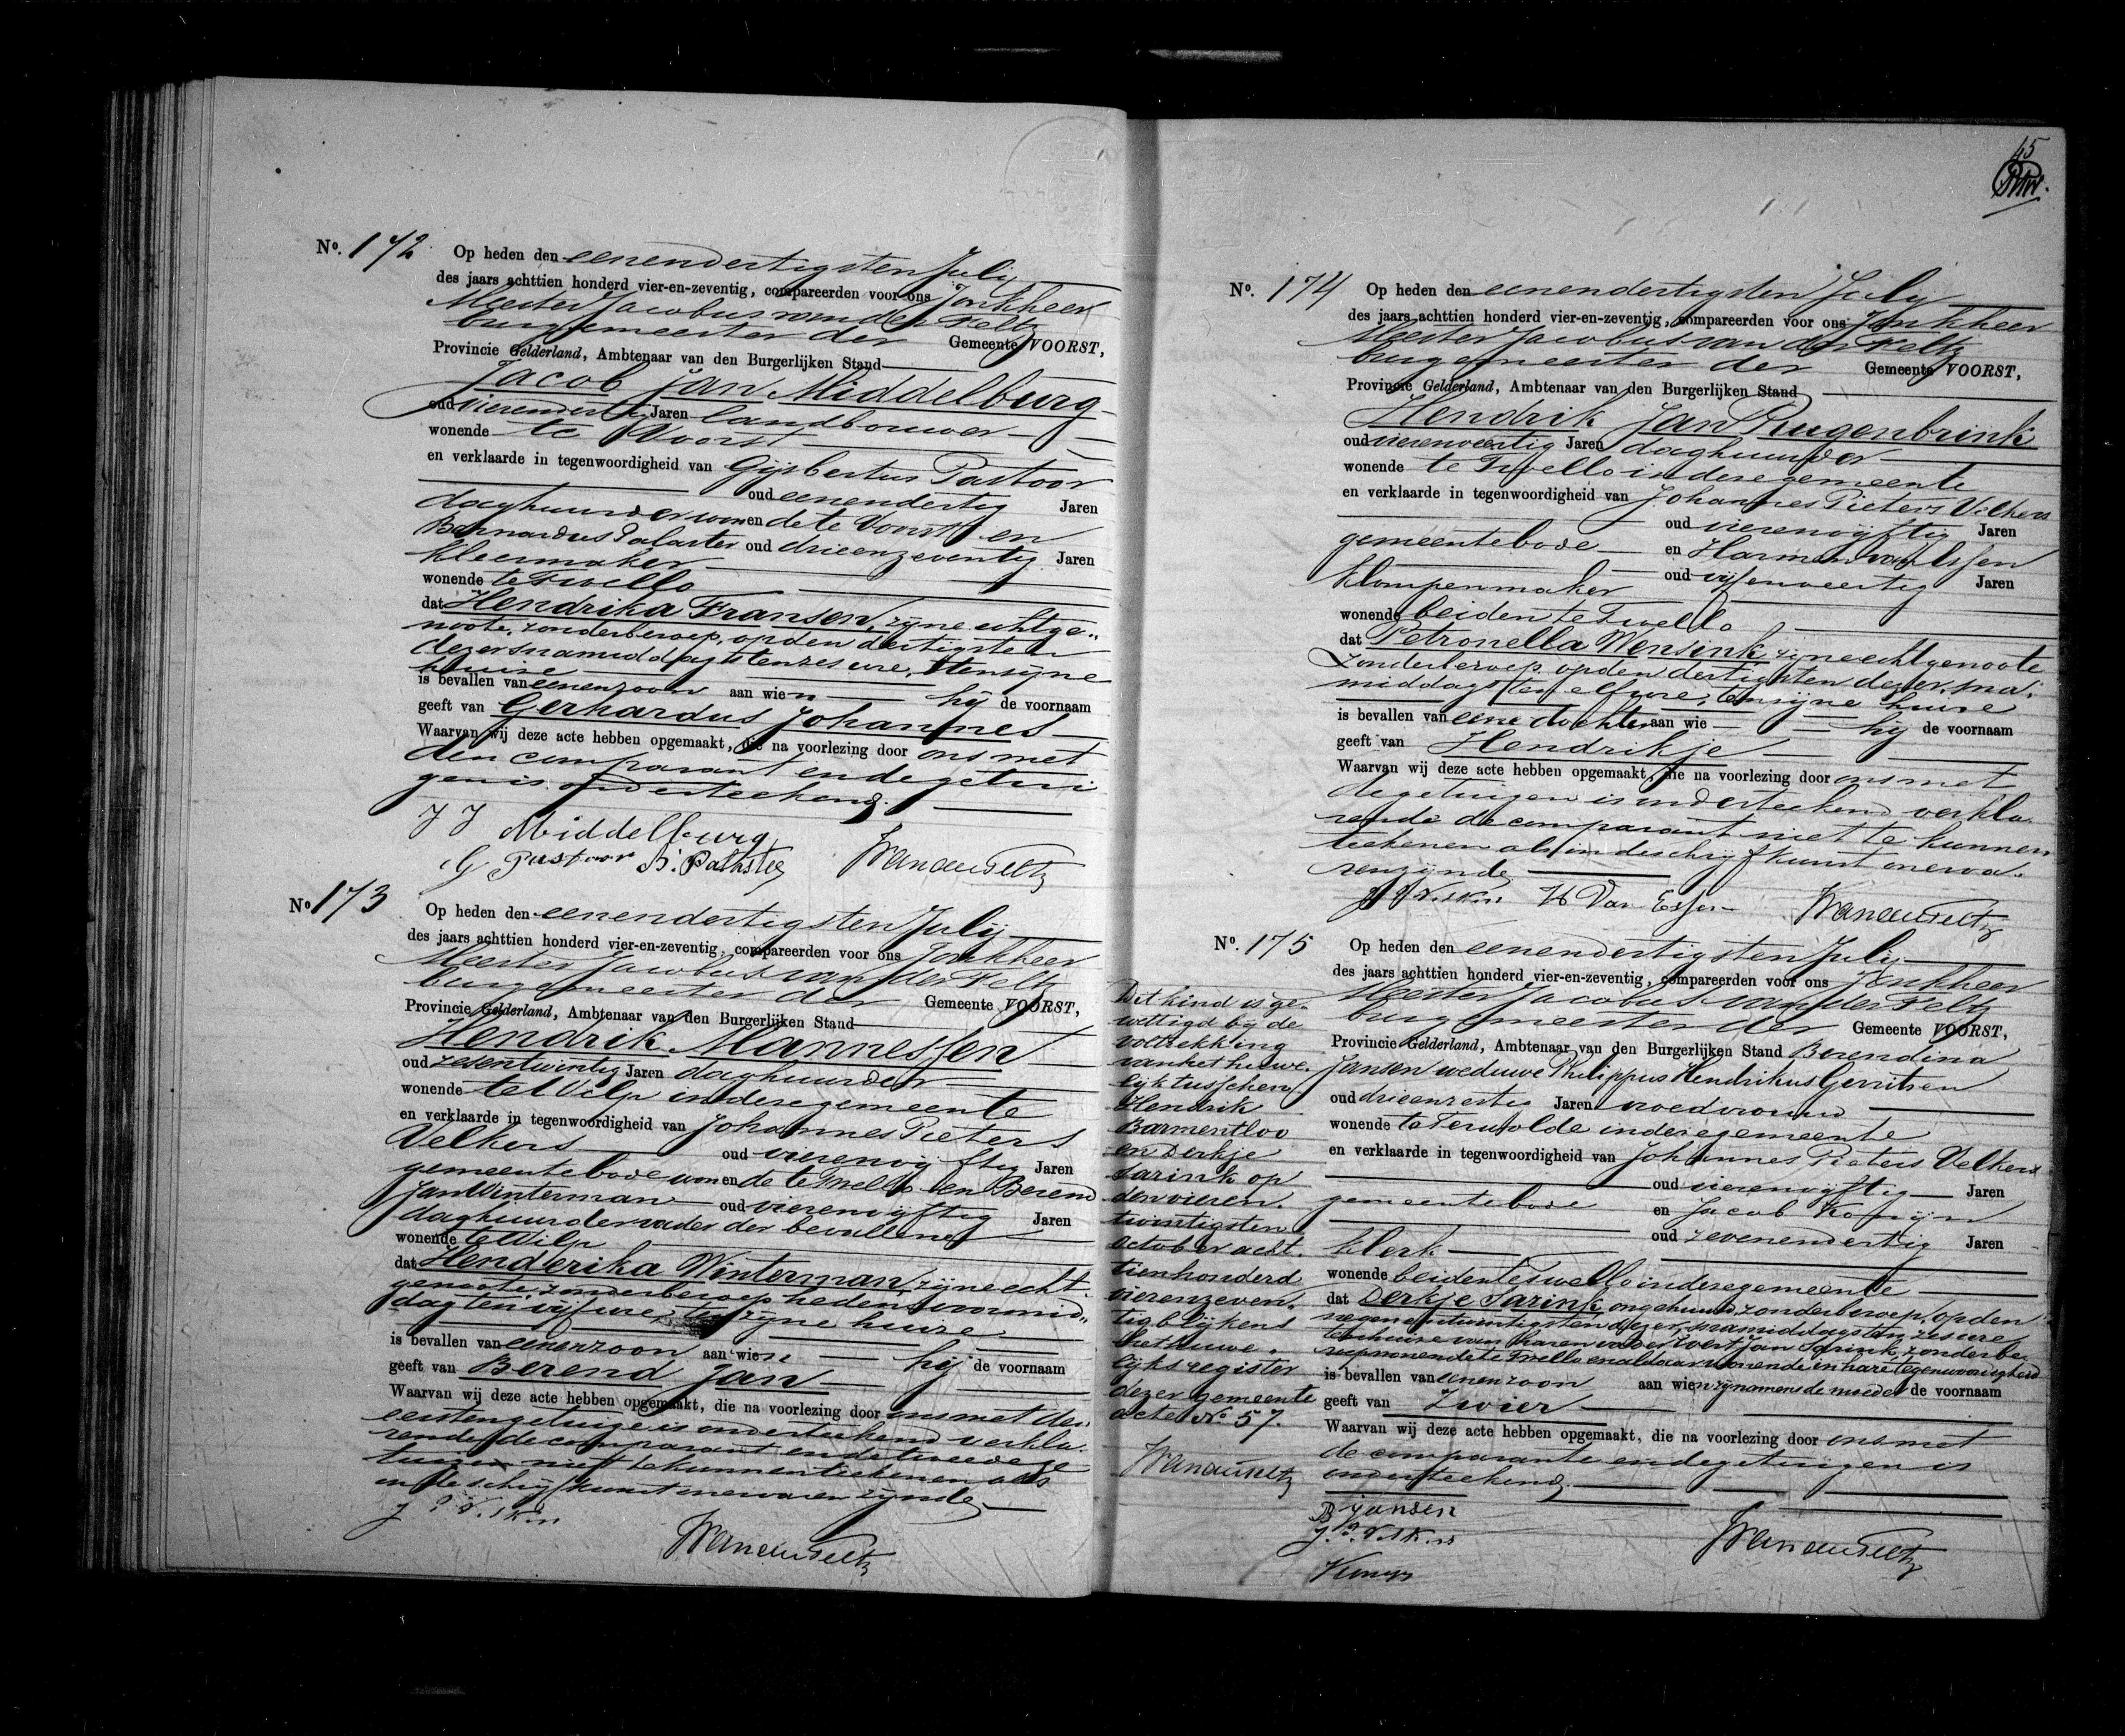 No. 172 Op heden den eenendertigsten July
des jaars achttien honderd vier-en-zeventig, compareerden voor ons Jonkheer
Meester Jacobus van der Feltz
burgemeester der Gemeente VOORST,
Provincie Gelderland, Ambtenaar van den Burgerlijken Stand
Jacob Jan Middelburg
oud vierendertig Jaren landbouwer
wonende te Voorst
en verklaarde in tegenwoordigheid van Gijsbertus Pastoor
oud eenendertig Jaren
daghuurder wonende te Voorst en
Bernardus Palaster oud drieenzeventig Jaren
kleermaker
wonende te Twello
dat Hendrika Fransen, zijne echtge„
noote, zonder beroep, op den dertigsten
dezer snamiddags ten zes ure, ten zijne
huize
is bevallen van eenen zoon aan wien hij de voornaam
geeft van Gerhardus Johannes
Waarvan wij deze acte hebben opgemaakt, die na voorlezing door ons met
den comparant en de getui
gen is onderteekend.
J J Middelburg
G Pastoor
No 173 Op heden den eenendertigsten July
des jaars achttien honderd vier-en-zeventig, compareerden voor ons Jonkheer
Meester Jacobus van der Feltz
burgemeester der Gemeente VOORST,
Provincie Gelderland, Ambtenaar van den Burgerlijken Stand
Hendrik Mannessen
oud zesentwintig Jaren daghuurder
wonende te Wilp in deze gemeente
en verklaarde in tegenwoordigheid van Johannes Pieters
Velkers oud vierenvijftig Jaren
gemeentebode wonende te Twello en Berend
Jan Winterman oud vierenvijftig Jaren
daghuurder vader der bevallene
wonende te Wilp
dat Henderika Winterman, zijne echt„
genoote, zonder beroep, heden voormid„
dag ten vijf ure, te zijne huize
is bevallen van eenen zoon aan wien hij de voornaam
geeft van Berend Jan
Waarvan wij deze acte hebben opgemaakt, die na voorlezing door ons met den
eersten getuige is onderteekend verkla„
rende de comparant en de tweede ge
tuige niet te kunnen teekenen als
in de schrijfkunst onervaren zijnde
45
No. 174 Op heden den eenendertigsten July
des jaars achttien honderd vier-en-zeventig, compareerden voor ons Jonkheer
Meester Jacobus van der Feltz
burgemeester der Gemeente VOORST,
Provincie Gelderland, Ambtenaar van den Burgerlijken Stand
Hendrik Jan Rugenbrink
oud vierenveertig Jaren daghuurder
wonende te Twello in deze gemeente
en verklaarde in tegenwoordigheid van Johannes Pieters Velkers
oud vierenvijftig Jaren
gemeentebode en Harmen van Essen
oud vijfenveertig Jaren
klompenmaker
wonende beiden te Twello
dat Petronella Wensink zijne echtgenoote
zonder beroep op den dertigsten dezer, sna„
middags ten elf ure, ten zijne huize
is bevallen van eene dochter aan wie hij de voornaam
geeft van Hendrikje
Waarvan wij deze acte hebben opgemaakt, die na voorlezing door ons met
de getuigen is onderteekend verkla„
rende de comparant niet te kunnen
teekenen als in de schrijfkunst onerva„
ren zijnde
H Van Essen
No. 175 Op heden den eenendertigsten July
des jaars achttien honderd vier-en-zeventig, compareerden voor ons Jonkheer
Meester Jacobus van der Feltz
burgemeester der Gemeente VOORST,
Provincie Gelderland, Ambtenaar van den Burgerlijken Stand Berendina
Jansen weduwe Philippus Hendrikus Gerritsen
oud drieenzestig Jaren vroedvrouw
wonende te Terwolde in deze gemeente
en verklaarde in tegenwoordigheid van Johannes Pieters Velkers
oud vierenvijftig Jaren
gemeentebode en Jacob Konijn
oud zevenendertig Jaren
klerk
wonende beiden te Twello in deze gemeente
dat Derkje Sarink, ongehuwd, zonder beroep, op den
negenentwintigsten dezer, snamiddags ten zes ure,
ten huize van haren vader Evert Jan Sarink, zonder be„
roep wonende te Twello en aldaar wonende in hare tegenwoordigheid
is bevallen van eenen zoon aan wien zij namens de moeder de voornaam
geeft van Zwier
Waarvan wij deze acte hebben opgemaakt, die na voorlezing door ons met
de comparante en de getuigen is
onderteekend.
B Jansen
Dit kind is ge„
wettigd bij de
voltrekking
van het huwe„
lijk tusschen
Hendrik
Barmentloo
en Derkje
Sarink op
den vieren„
twintigsten
October acht„
tienhonderd
vierenzeven„
tig blijkens
het huwe„
lijksregister
dezer gemeente
acte No. 57.